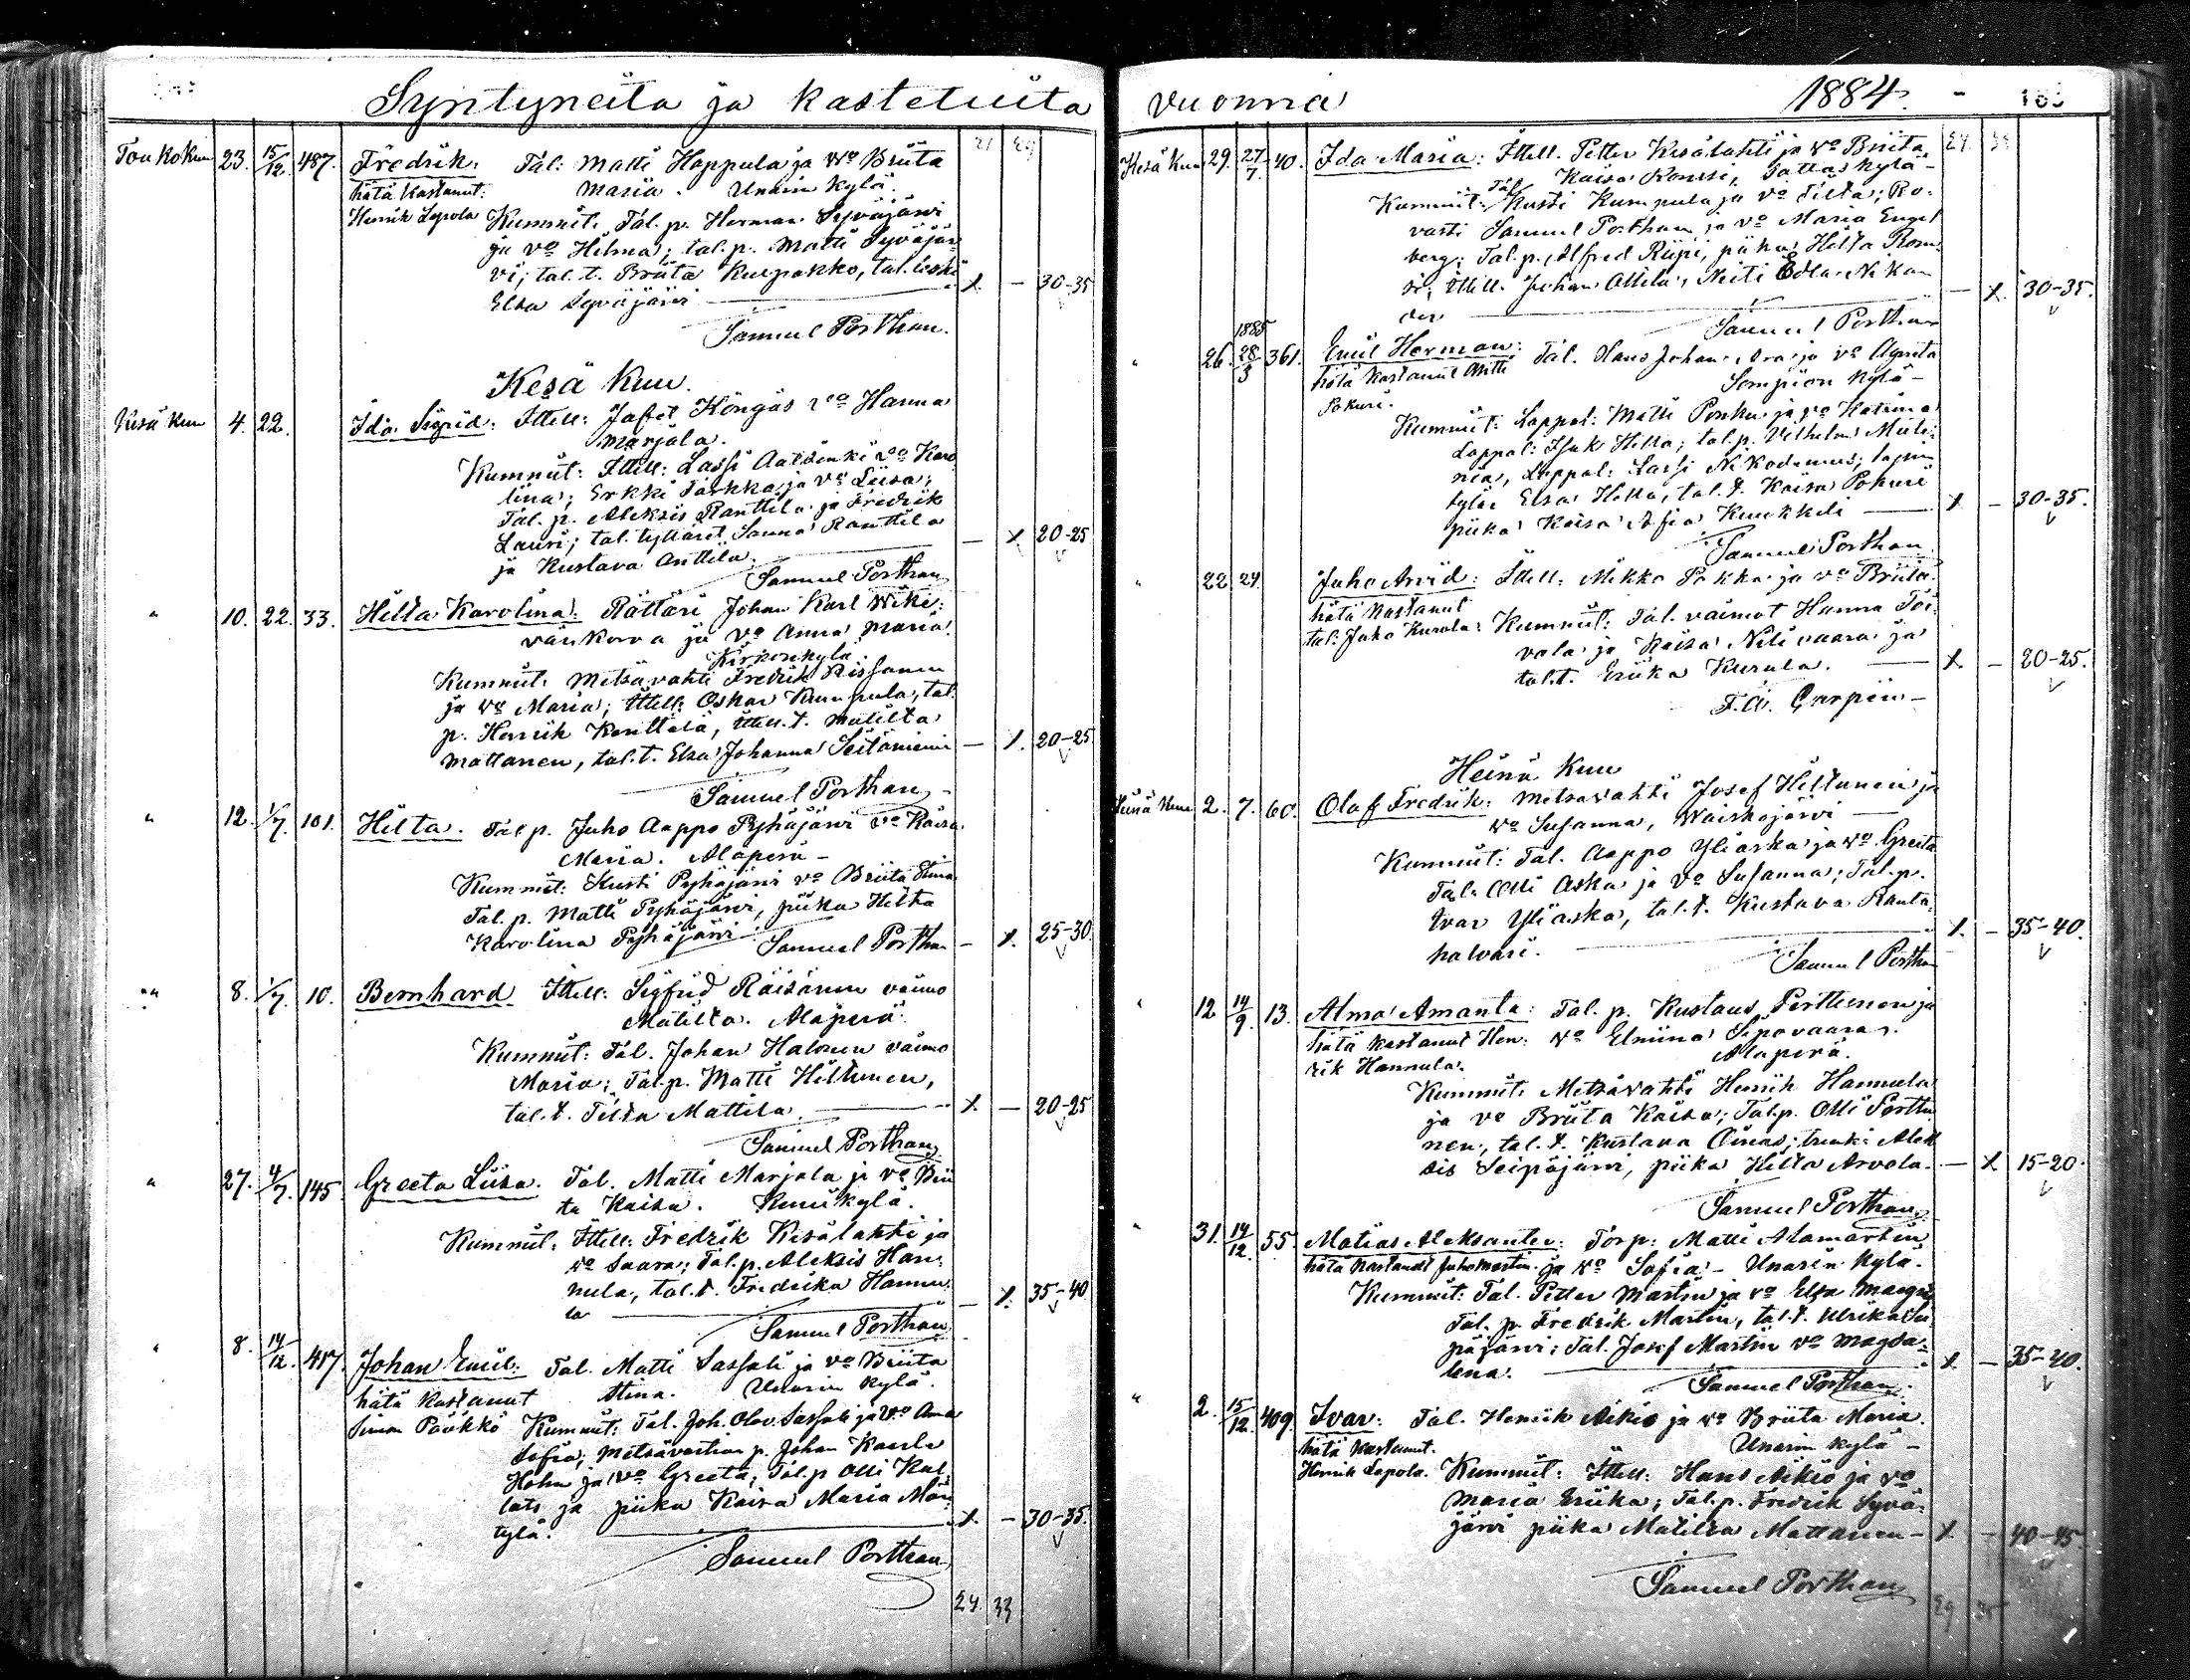 Syntyneitä ja kastetuita vuonna 1884.
Toukokuu 23. 15/12 487. Fredrik. Tal: Matti Hoppula ja Wo Briita
hätä kastanut: Maria. Unarin kylä.
Henrik Lepola Kummit: Tal. p. Herman Syväjärvi
ja vo Hilma; tal. p. Matti Syväjär-
vi; tal. t. Briita Kuspakko, tal. leski
Elsa Syväjärvi X. - 30-35
Samuel Porthan.
Kesä Kuu.
Kesä kuu 4. 22. Ida Sigrid: Ittell: Jafet Köngäs vo Hanna
Marjala.
Kummit: Ittell: Lassi Aaltonki vo Karo
liina; Erkki Tarkka ja vo Liisa;
Tal. p. Aleksis Ranttila ja Fredrik
Lauri; tal. tyttäret Sanna Ranttila
ja Kustava Anttila. - X 20-25
Samuel Porthan
" 10. 22. 33. Hilta Karolina: Rättäri Johan Karl Wiki-
vänkorva ja vo Anna Maria.
Kirkonkylä
Kummit: Metsävahti Fredrik Rissanen
ja vo Maria; Ittell: Oskar Kumpula, tal.
p. Henrik Kenttälä, Ittell. t. Matilta
Mattanen, tal. t. Elsa Johanna Seitäniemi - X. 20-25
Samuel Porthan
" 12. 1/7. 101. Hilta. Tal p. Juho Aappo Pyhäjärvi vo Kaisa
Maria. Alaperä -
Kummit: Kusti Pyhäjärvi vo Briita Stina
Tal. p. Matti Pyhäjärvi, piika Hilta
Karolina Pyhäjärvi - X. 25-30.
Samuel Porthan
" 8. 1/7. 10. Bernhard. Ittell: Sigfrid Räisänen vaimo
Matilta. Alaperä.
Kummit: Tal. Johan Halonen vaimo
Maria; Tal. p. Matti Hiltunen,
tal. t. Tilta Mattila. X. - 20-25
Samuel Porthan
" 27. 4/7. 145 Greeta Liisa. Tal. Matti Marjala ja vo Brii
ta Kaisa. kylä.
Kummit: Ittell: Fredrik Kesälahti ja
vo Saara; Tal. p. Aleksis Han-
nula, tal. t. Fredrika Hannu-
la - X. 35-40
Samuel Porthan
" 8. 14/12. 417. Johan Emil: Tal. Matti Sassali ja vo Briita
hätä kastanut Stina. Unarin kylä.
Simon Pöökkö Kummit: Tal. Joh. Olov Sassali ja vo Anna
Sofia; Metsävartian p. Johan Kaarle
Hohn ja vo Greeta; Tal. p Olli
ja piika Kaisa Maria Män-
tylä. X. - 30-35.
Samuel Porthan
24. 33
Kesä Kuu 29. 27/7. 40. Ida Maria: Ittell. Petter Kesälahti ja vo Briita
Kaisa Sattas kylä -
Kummit: Tal. Kusti Kumpula ja vo Tilta; Ro-
vasti Samuel Porthan ja vo Maria Engel
berg; Tal. p. Alfred Riipi, piika Hilta
Ittell. Johan Attila, Neiti Edla Nikan
der - X. 30-35.
Samuel Porthan
" 26. 1885 28/3 361. Emil Herman: Tal. Hans Johan ja vo Agneta
hätä kastanut Antti Sompion kylä -
Pokuri.
Kummit: Lappal: Matti Ponku ja vo Katrina
Lappal: Isak Hetta; tal. p. Vilhelm
Lappal: Lassi Nikodemus;
Elsa Hetta, tal. t. Kaisa Pokuri
piika Kaisa Kuukkeli X - 30-35.
Samuel Porthan
" 22 24. Juho Arvid: Ittell: Mikko Pokka ja vo Briita.
hätä kastanut
tal: Juho Kurula: Kummit: Tal. vaimot Hanna Toi-
vola ja Kaisa Nilivaara ja
tal. t. Eriika Kurula. X. - 20-25.
F. A.
Heinä Kuu
Heinä kuu 2. 7. 60. Olof Fredrik: Metsävahti Josef Hiltunen ja
vo Susanna, Waiskojärvi
Kummit: Tal. Aappo Yliaska ja vo Greeta
Tal. Olli Aska ja vo Susanna; Tal. p.
Ivar Yliaska, tal. t. Kustava Ranta-
halvari. X. - 35-40.
Samuel Porthan
" 12 14/9. 13. Alma Amanta: Tal. p. Kustaus Perttunen ja
hätä kastanut Hen: vo Elmiina Sipovaara.
rik Hannula. Alaperä.
Kummit: Metsävahti Henrik Hannula
ja vo Briita Kaisa; Tal. p. Olli Perttu
nen, tal. t. Kustava Oinas; renki Alek
sis Seipäjärvi, piika Hilta Arvola. - X 15-20.
Samuel Porthan
" 31. 14/12 55. Matias Aleksanter: Torp: Matti Alamartin
hätä kastanut Juho Martin ja vo Sofia - Unarin kylä.
Kummit: Tal. Petter Martin ja vo Elsa
Tal. p. Fredrik Martin, tal. t. Ulrika Sei
päjärvi; Tal. Josef Martin vo Magda-
lena. X. - 35-40.
Samuel Porthan
" 2. 15/12. 409. Ivar: Tal. Henrik Aikio ja vo Briita Maria.
hätä kastanut. Unarin kylä -
Henrik Lepola. Kummit: Ittell: Hans Aikio ja vo
Maria Eriika; Tal. p. Fredrik Syvä-
järvi piika Matilta Mattanen - X. - 40-45
Samuel Porthan